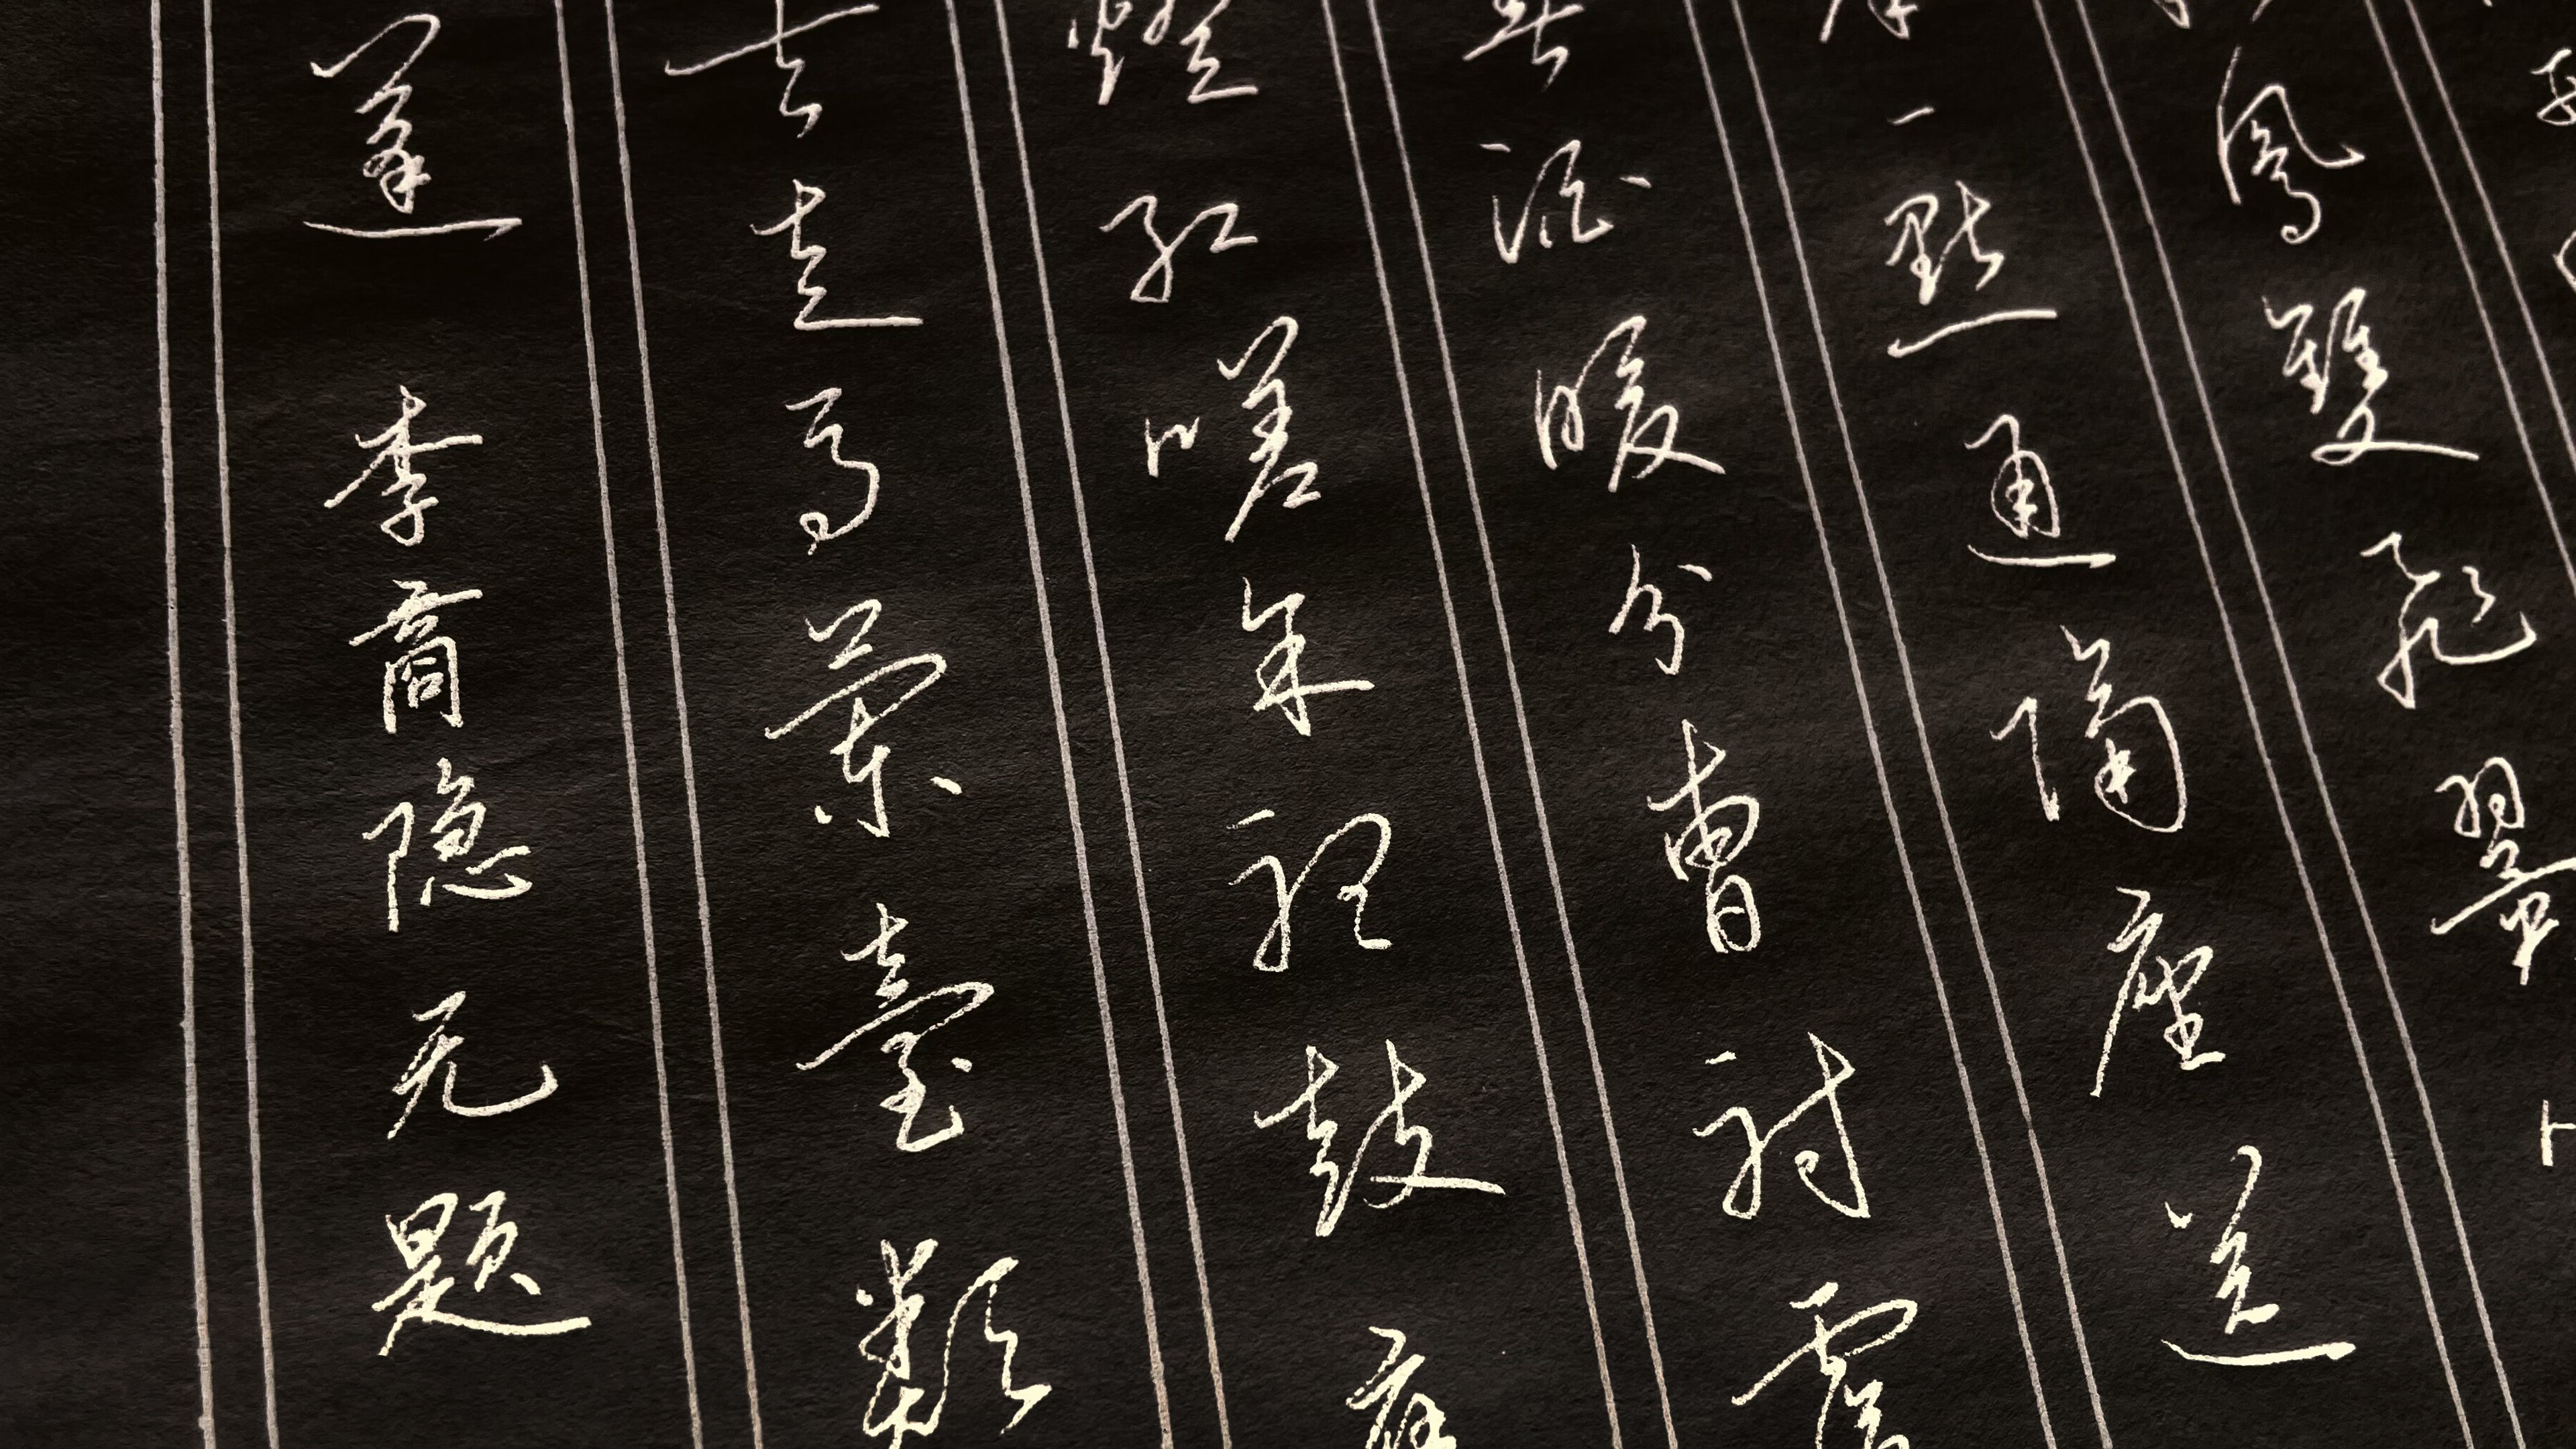 鳳雙飛翼
一點通隔座送
春酒暖分曹射覆
燈紅嗟余聽鼓應
去走馬蘭臺類
蓬 李商隐无题